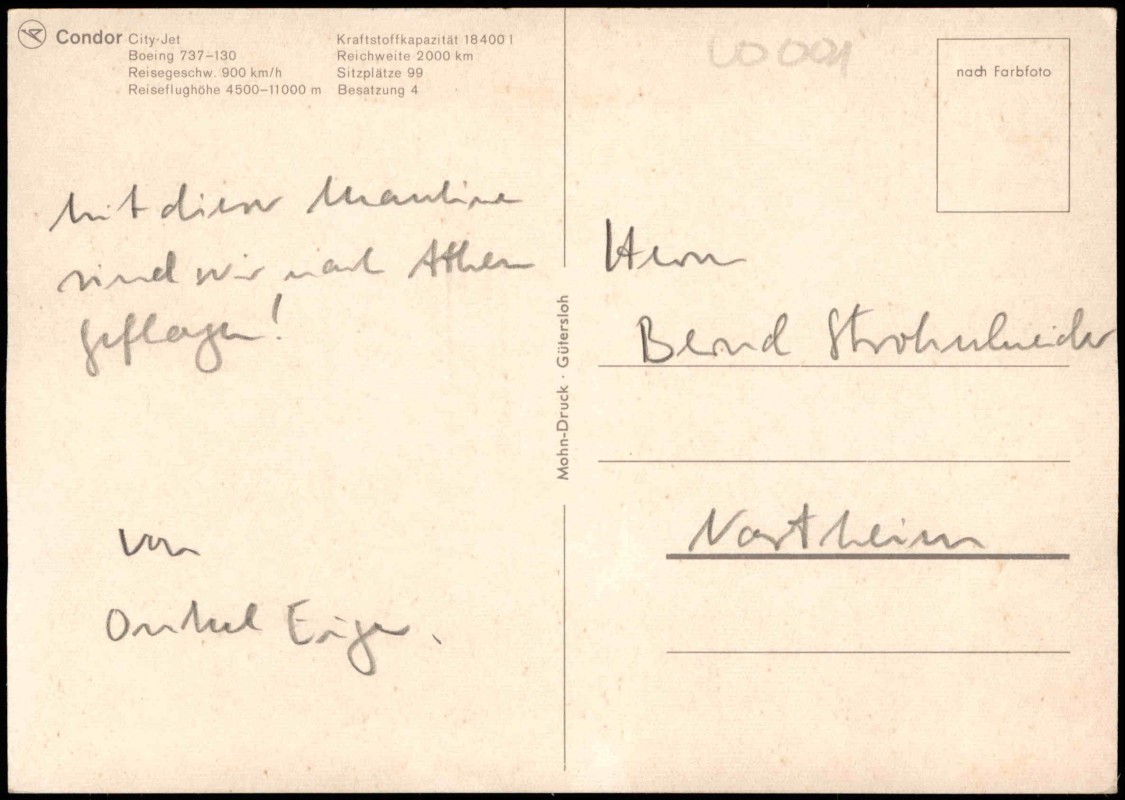 Condor City-Jet
Boeing 737–130
Reisegeschw. 900 km/h
Reiseflughöhe 4500–11000 m
Kraftstoffkapazität 18400 l
Reichweite 2000 km
Sitzplätze 99
Besatzung 4
nach Farbfoto
Mit dieser Maschine
sind wir nach Athen
geflogen!
von
Onkel
Mohn-Druck · Gütersloh
Herrn
Bernd Strohschneider
Northeim